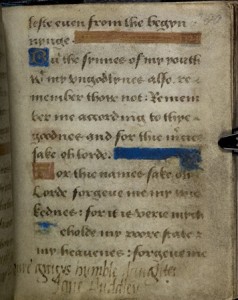 leste even from the begyn
nynge
But the synnes of my youth
& my ungodlynes also. re
member thow not: Remem
ber me accordyng to thye
goodnes and for thie names
sake oh lorde.
For thie names sake oh
Lorde forgeve me my wic
kednes: for it is verie mych
Beholde my poore state &
my heavenes: forgeve me
humble
Jane Duddley